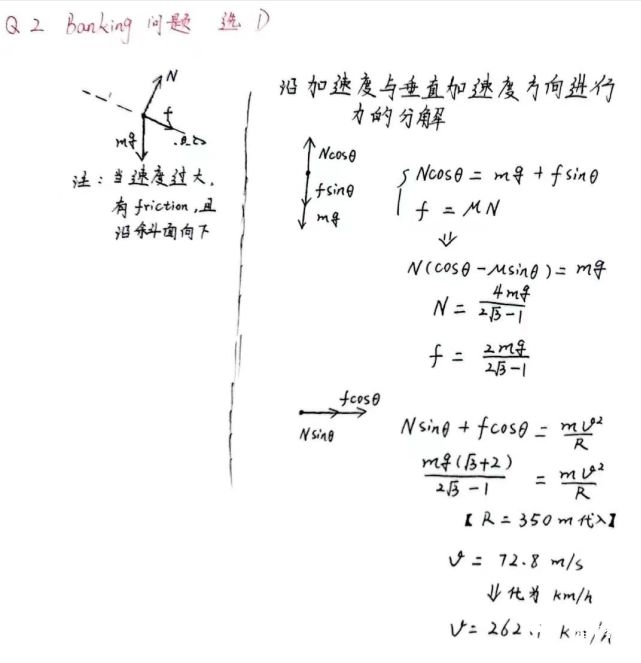 Q 2 Banking 问题 选 D
N
f
mg
注：当速度过大，
有 friction，且
沿斜面向下
沿加速度与垂直加速度方向进行
力的分解
Ncosθ
fsinθ
mg
Ncosθ = mg + fsinθ
f = μN
⇓
N(cosθ-μsinθ) = mg
N = 4mg/(2√3-1)
f = 2mg/(2√3-1)
fcosθ
Nsinθ
Nsinθ + fcosθ = mv²/R
mg(√3+2)/(2√3-1) = mv²/R
【R = 350m代入】
v = 72.8 m/s
⇓ 化为 km/h
v = 262.1 km/h